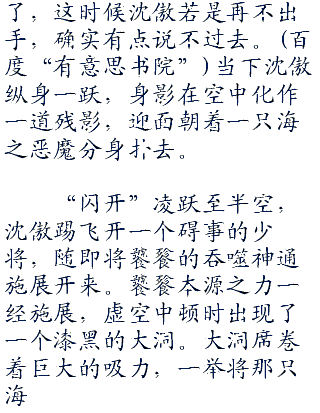 了，这时候沈傲若是再不出
手，确实有点说不过去。(百
度“有意思书院”)当下沈傲
纵身一跃，身影在空中化作
一道残影，迎面朝着一只海
之恶魔分身扑去。
“闪开”凌跃至半空，
沈傲踢飞开一个碍事的少
将，随即将饕餮的吞噬神通
施展开来。饕餮本源之力一
经施展，虚空中顿时出现了
一个漆黑的大洞。大洞席卷
着巨大的吸力，一举将那只
海